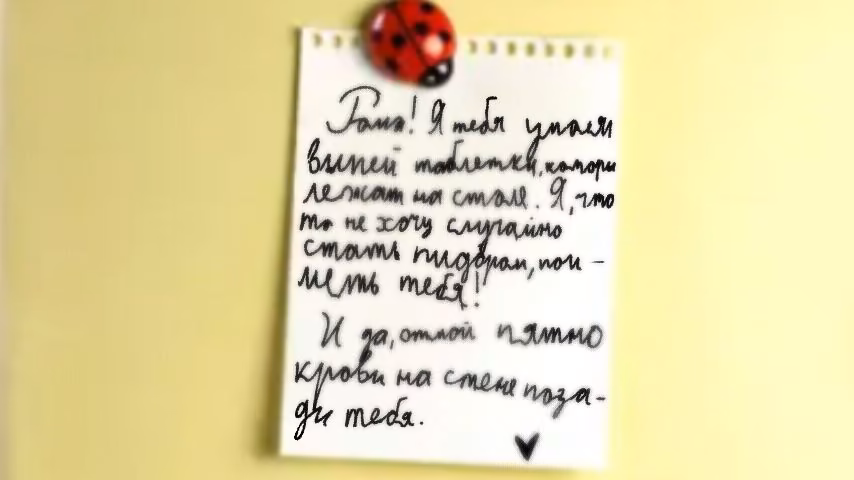 Рома! Я тебя умоляю
выпей таблетки, которы
лежат на столе. Я, что
то не хочу случайно
стать пидором, пои-
меть тебя!
И да, отмой пятно
крови на стене поза-
ди тебя.